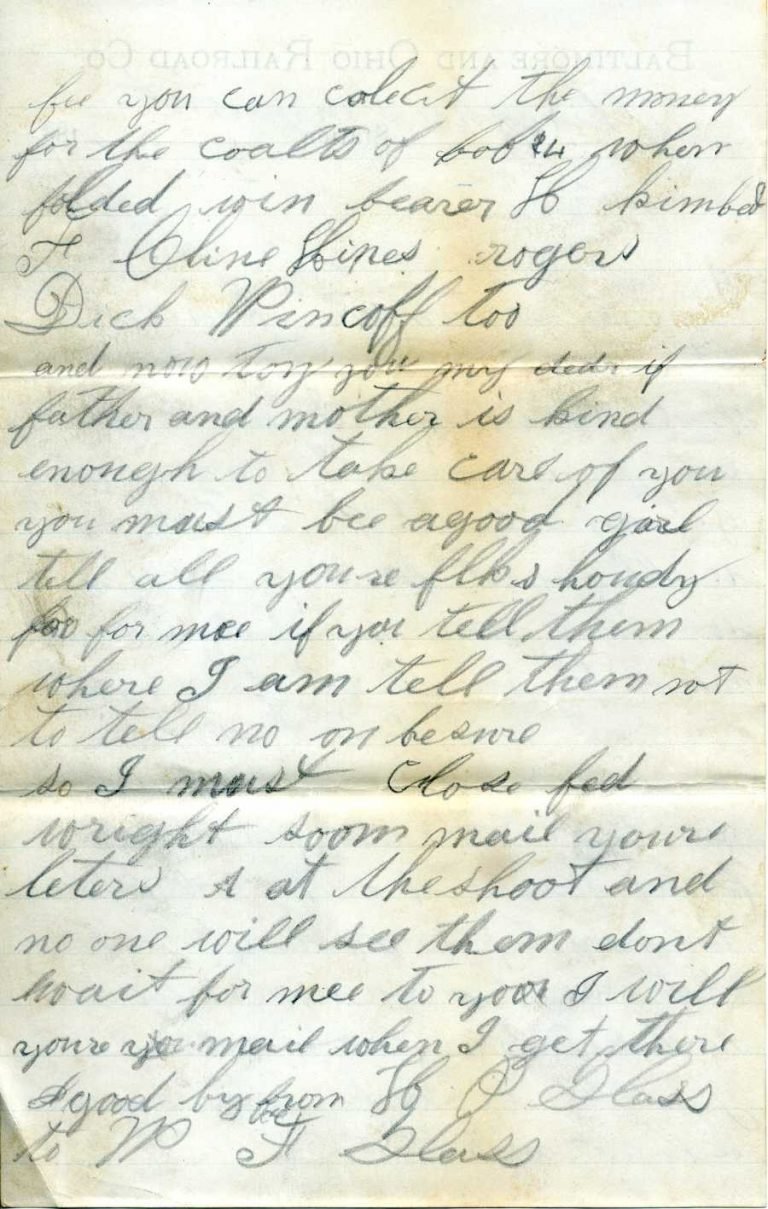 BALTIMORE AND OHIO RAILROAD CO
fee you can colect the money
for the coalts of bob $4 when
folded win bearer H kimbel
F Cline Hines rogers
Dick Wincoff too
and now toy you my deds if
father and mother is kind
enough to take care of you
you must bee agood girl
tell all youre flks houdy
foo for mee if you tell them
where I am tell them not
to tell no on besure
so I must Close fed
wright soom mail youre
leters at theshoot and
no one will see them dont
wait for mee to you I will
youre mail when I get there
good by from H P Glass
to W F Glass